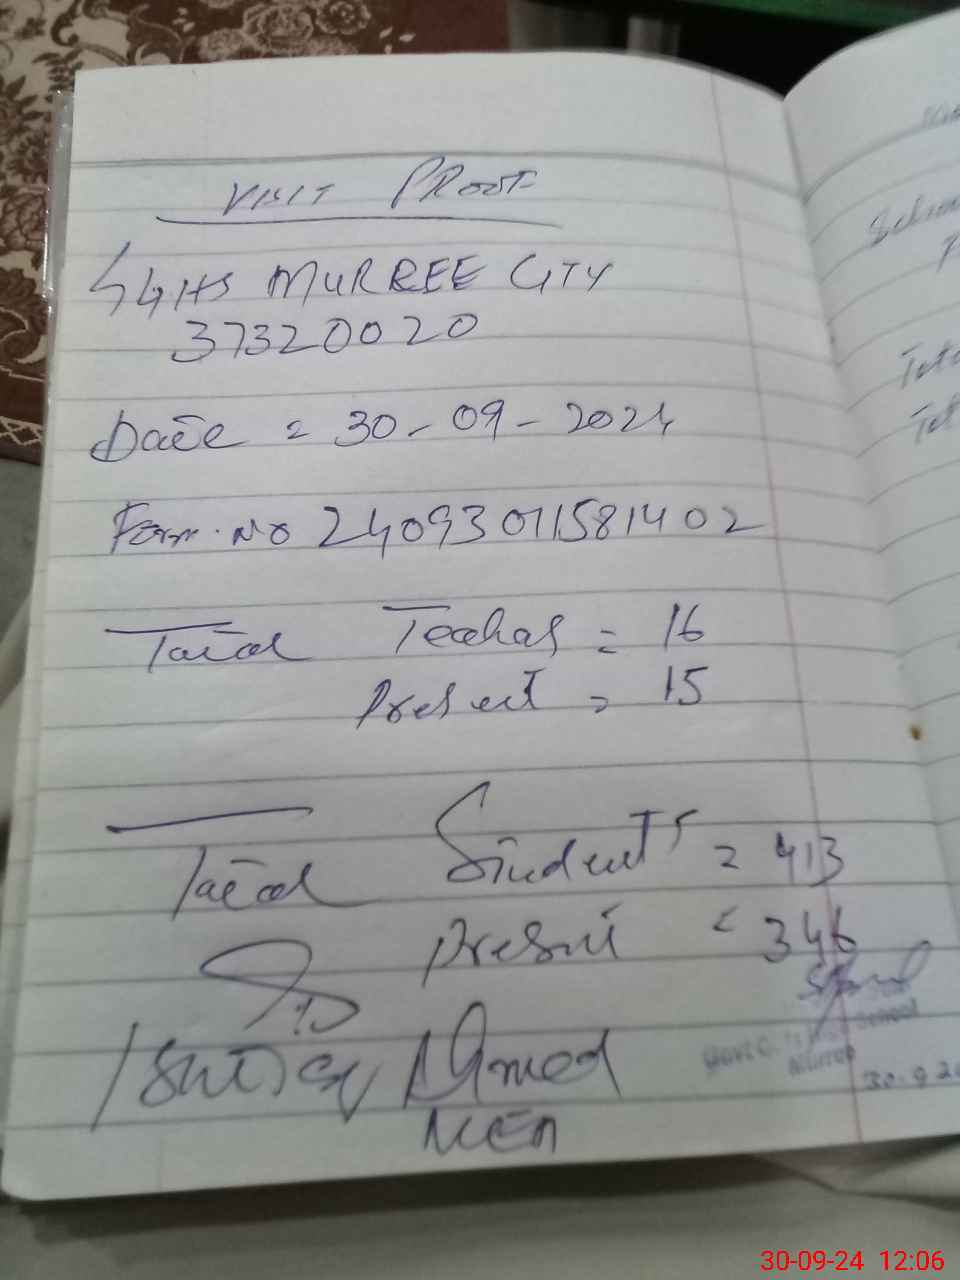 VISIT PROOF
GGHS MURREE CITY
37320020
Date = 30-09-2024
Form.No 24093011581402
Total Teachers = 16
Present = 15
Total Students = 413
Present = 346
Ahmed
MEA
Govt. G. High School
Murree
30.9.20
Tot
Tot
30-09-24 12:06